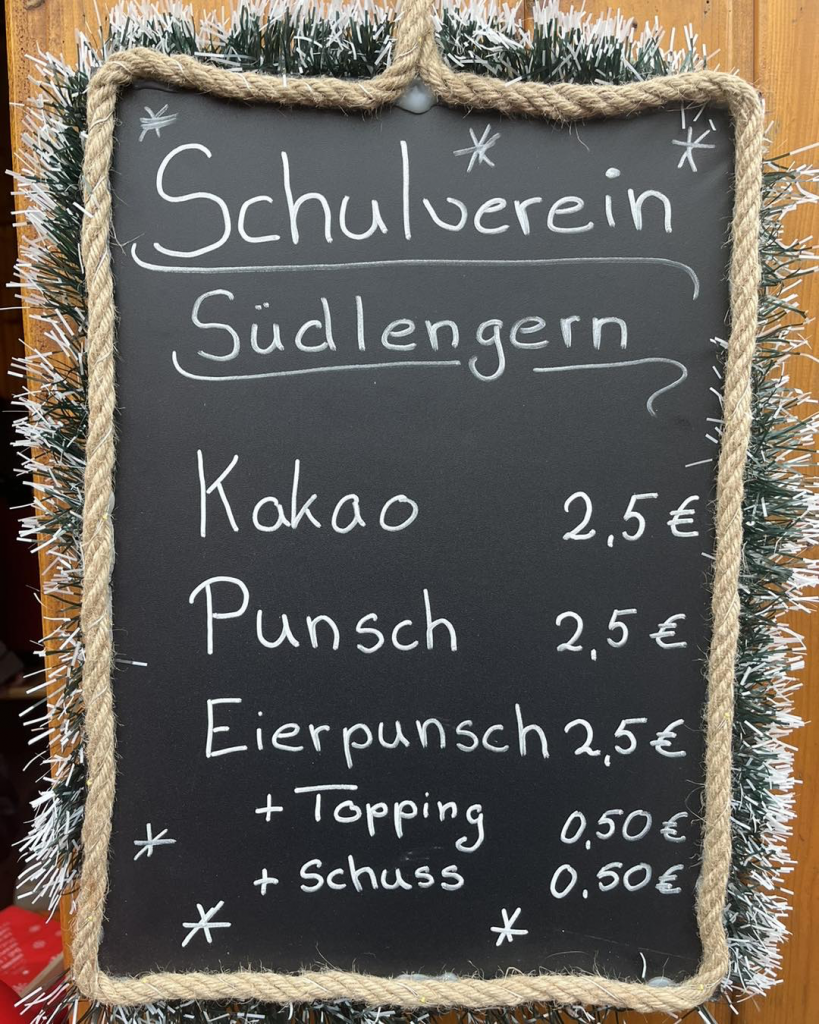 Schulverein
Südlengern
Kakao 2,5 €
Punsch 2,5 €
Eierpunsch 2,5 €
+ Topping 0,50 €
+ Schuss 0,50 €